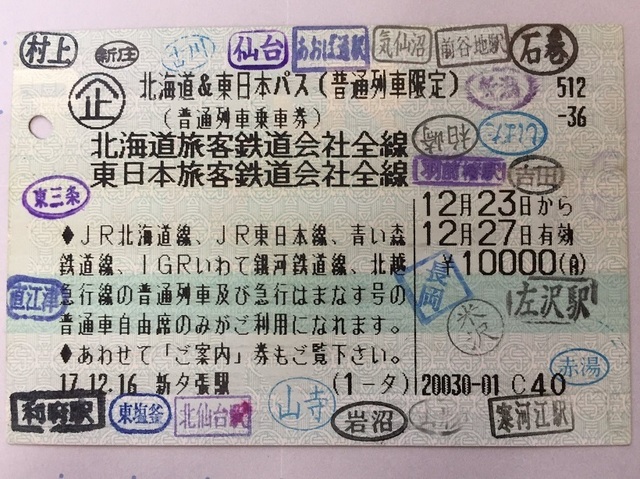 村上 新庄 古川 仙台 あおば通駅 気仙沼 前谷地駅 石巻
北海道&東日本パス(普通列車限定) 512
(普通列車乗車券) -36
北海道旅客鉄道会社全線 柏崎 しばた
東日本旅客鉄道会社全線 羽前椿駅 吉田
東三条 12月23日から
◆JR北海道線、JR東日本線、青い森 12月27日有効
鉄道線、IGRいわて銀河鉄道線、北越 ¥10000(A)
直江津 急行線の普通列車及び急行はまなす号の 長岡 左沢駅
普通車自由席のみがご利用になれます。 米沢
◆あわせて「ご案内」券もご覧下さい。 赤湯
17.12.16 新夕張駅 (1-タ) 20030-01 C40
利府駅 東塩釜 北仙台駅 山寺 岩沼 寒河江駅